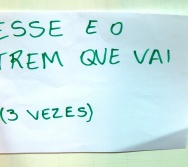 ESSE E O
TREM QUE VAI
(3 VEZES)